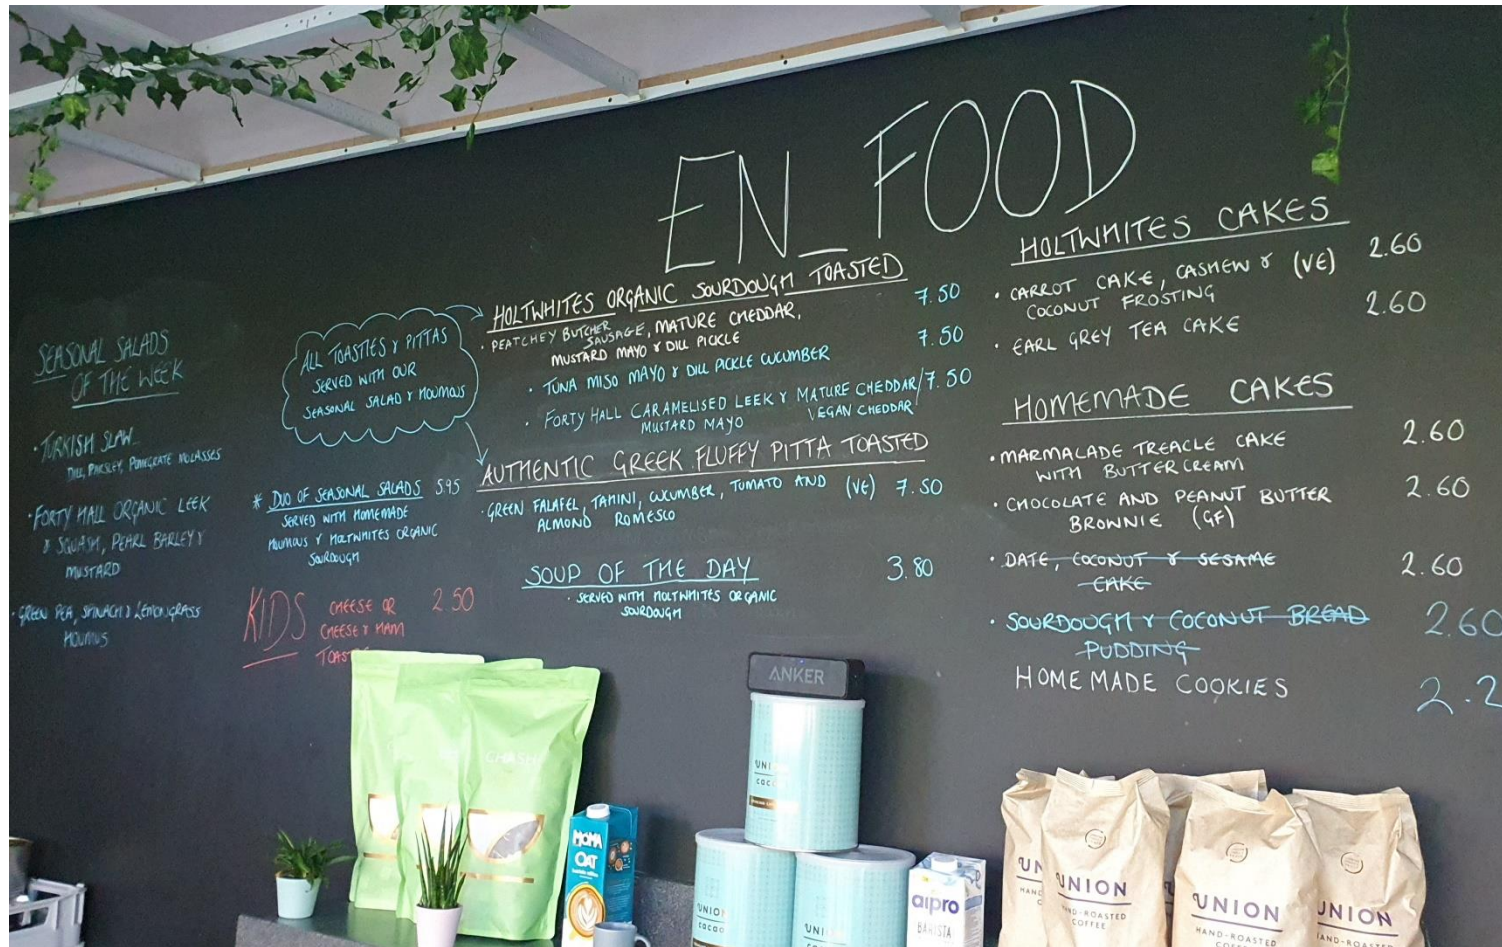 EN_FOOD
SEASONAL SALADS
OF THE WEEK
• TURKISH SLAW
DILL, PARSLEY, POMEGRATE MOLASSES
• FORTY HALL ORGANIC LEEK
& SQUASH, PEARL BARLEY &
MUSTARD
• GREEN PEA, SPINACH & LEMONGRASS
HOUMUS
ALL TOASTIES & PITTAS
SERVED WITH OUR
SEASONAL SALAD & HOUMOUS
* DUO OF SEASONAL SALADS 5.95
SERVED WITH HOMEMADE
HOUMOUS & HOLTWHITES ORGANIC
SOURDOUGH
KIDS CHEESE OR 2.50
CHEESE & HAM
HOLTWHITES ORGANIC SOURDOUGH TOASTED
• PEATCHEY BUTCHER 7.50
SAUSAGE, MATURE CHEDDAR,
MUSTARD MAYO & DILL PICKLE
• TUNA MISO MAYO & DILL PICKLE CUCUMBER 7.50
• FORTY HALL CARAMELISED LEEK & MATURE CHEDDAR/ 7.50
MUSTARD MAYO VEGAN CHEDDAR
AUTHENTIC GREEK FLUFFY PITTA TOASTED
• GREEN FALAFEL, TAHINI, CUCUMBER, TOMATO AND (VE) 7.50
ALMOND ROMESCO
SOUP OF THE DAY 3.80
• SERVED WITH HOLTWHITES ORGANIC
SOURDOUGH
HOLTWHITES CAKES
• CARROT CAKE, CASHEW & (VE) 2.60
COCONUT FROSTING
• EARL GREY TEA CAKE 2.60
HOMEMADE CAKES
• MARMALADE TREACLE CAKE 2.60
WITH BUTTERCREAM
• CHOCOLATE AND PEANUT BUTTER 2.60
BROWNIE (GF)
• DATE, COCONUT & SESAME 2.60
CAKE
• SOURDOUGH & COCONUT BREAD 2.60
PUDDING
HOMEMADE COOKIES
ANKER
UNION
MOMA
OAT
UNION
COCOA
alpro
BARISTA
UNION
HAND-ROASTED
COFFEE
UNION
HAND-ROASTED
UNION